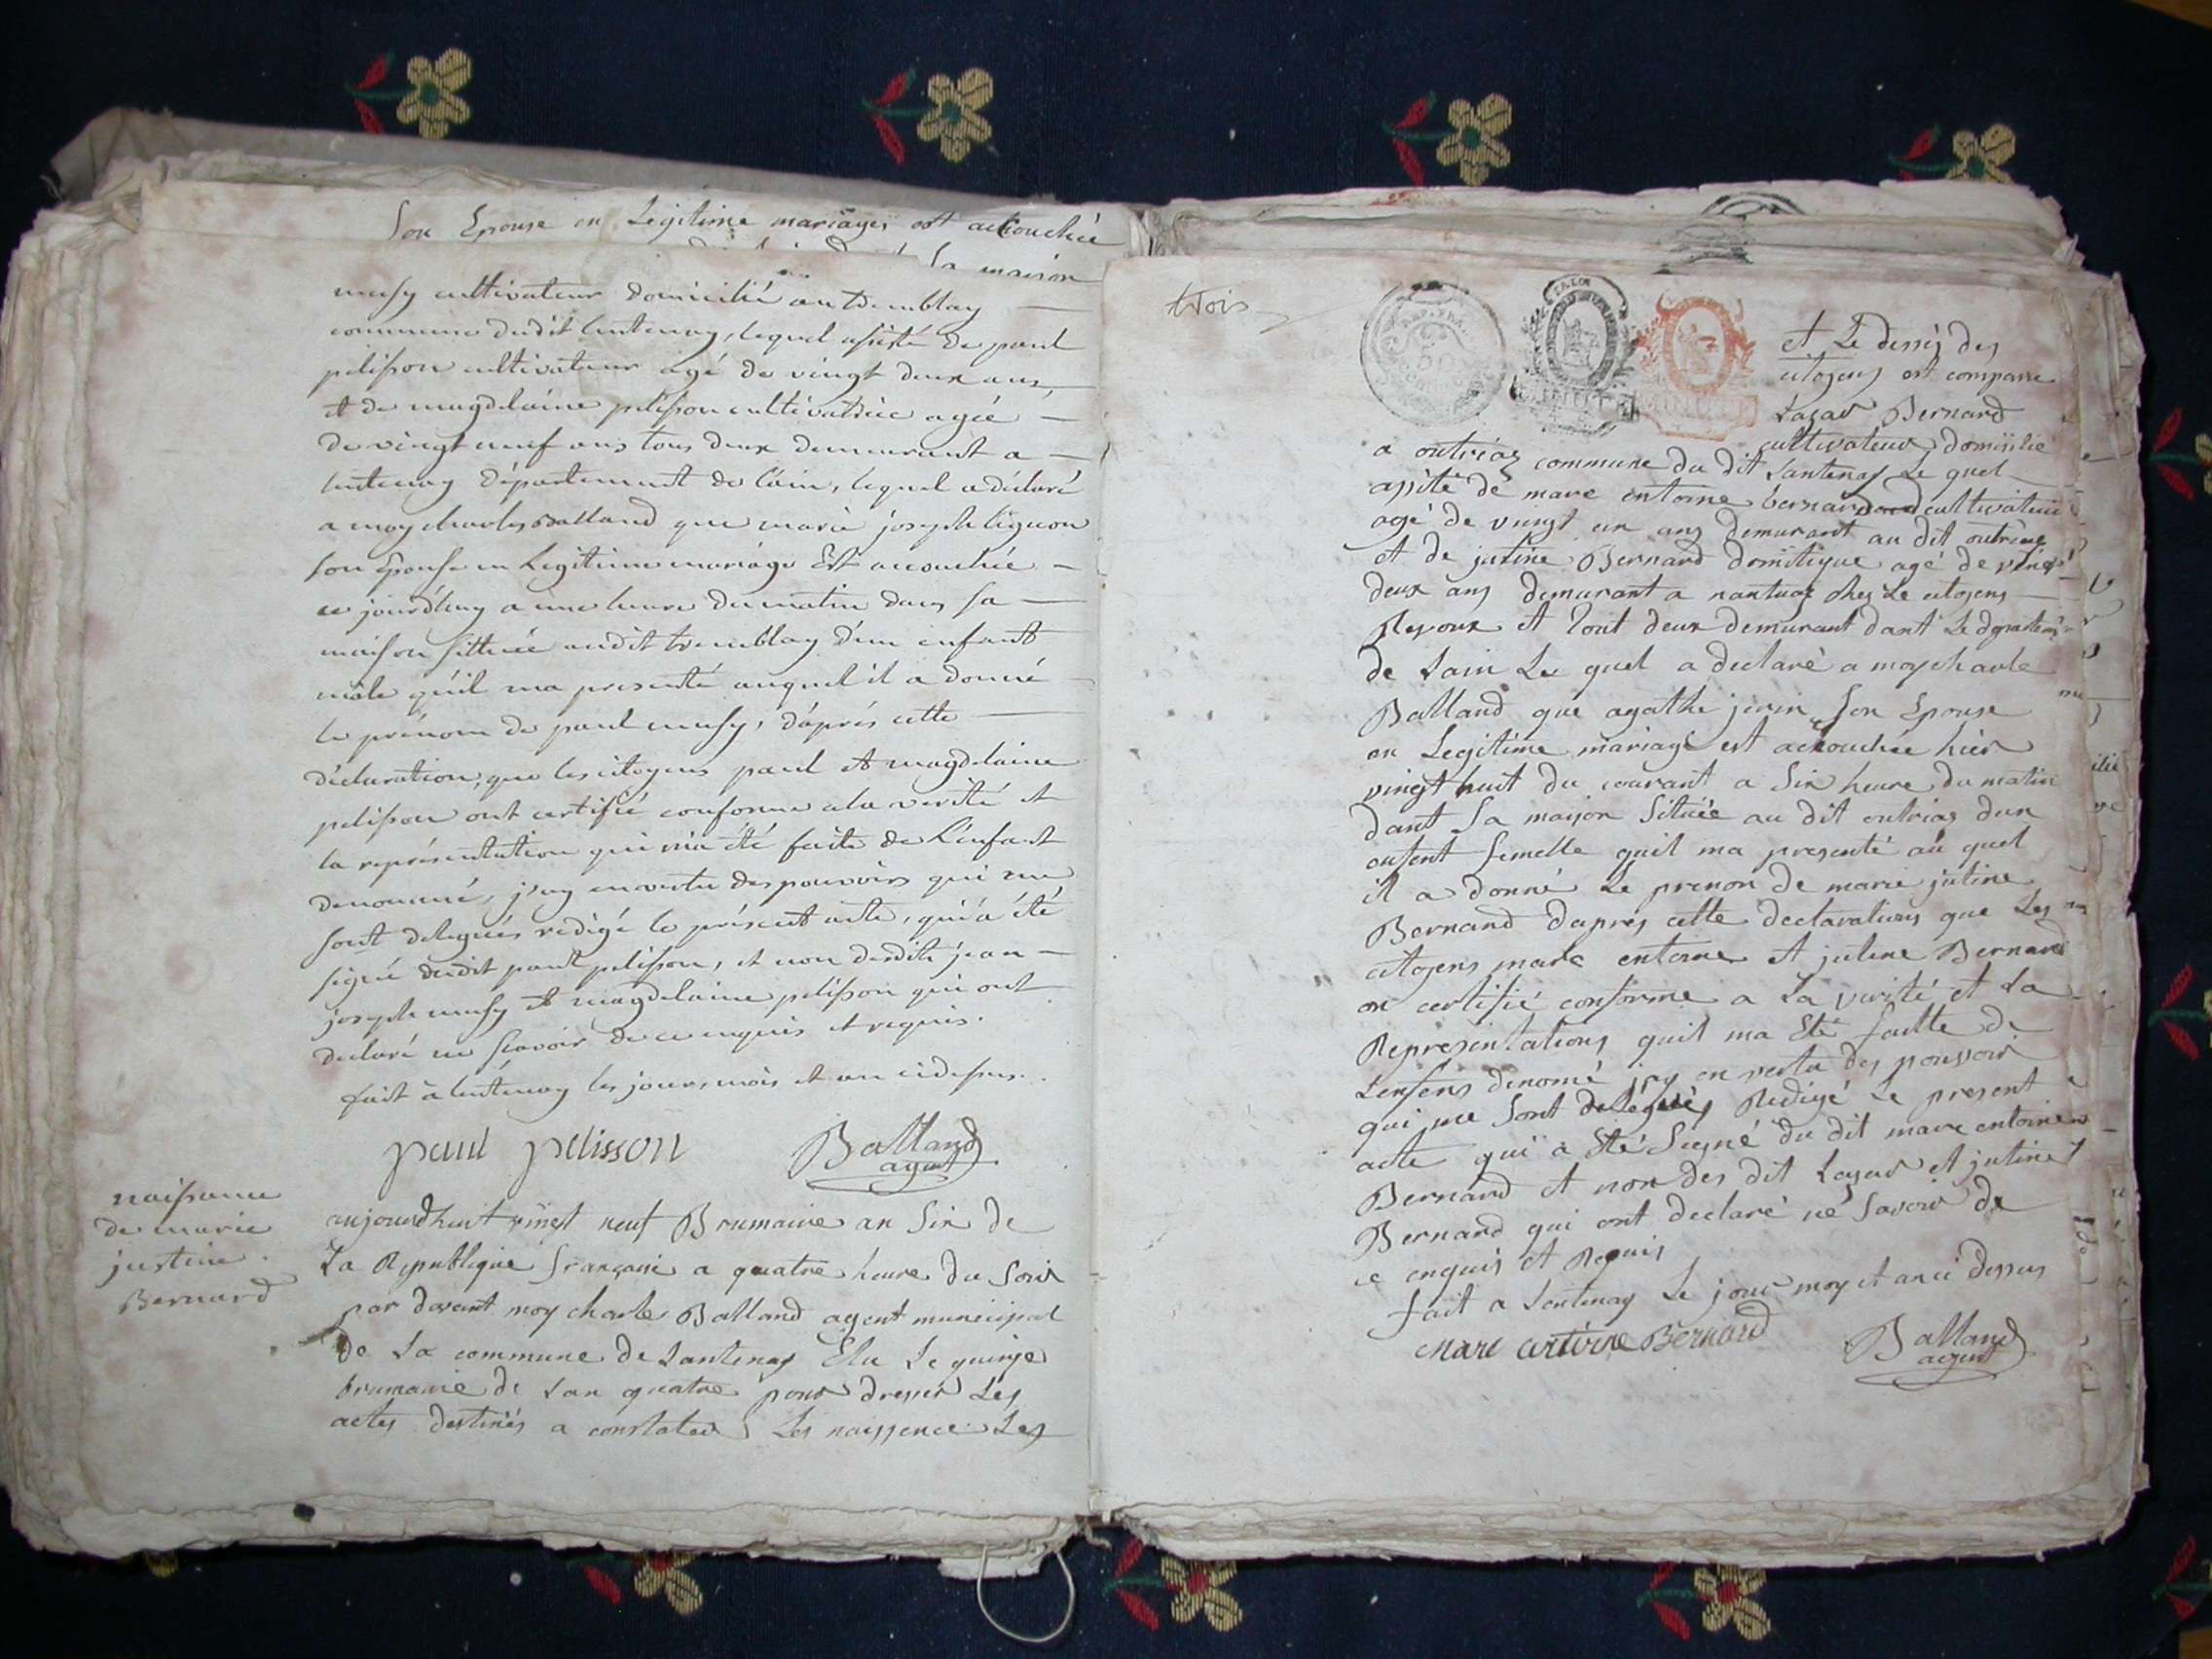 son Epouse en Legitime mariages est acĉouchée
la maison
musy cultivateur domicilié au tremblay
commune dudit lentenay, lequel assisté de paul
pelisson cultivateur agé de vingt deux ans,
et de magdelaine pelisson cultivatrice agée
de vingt neuf ans tous deux demeurant a
lentenay département de l'ain, lequel a déclaré
a moy charles Balland que marie joseph liguon
son Epouse en Legitime mariage Est accouchée
ce jourd'huy a une heure du matin dans sa
maison sittuée audit tremblay d'un enfant
mâle qu'il ma presenté auquel il a donné
le prénom de paul musy, d'aprés cette
déclaration, que les citoyens paul et magdelaine
pelisson ont certifié conforme a la verité et
la représentation qui m'a été faite de l'enfant
denommé, j'ay en vertu des pouvoirs qui me
sont delegués redigé le présent acte, qui a été
signé dudit paul pelisson, et non desdits jean
joseph musy et magdelaine pelisson qui ont
declaré ne scavoir de ce enquis et requis.
fait à lentenay les jours, mois et an cidessus.
paul pelisson Balland
agent
naissance
de marie
justine
Bernard
aujourdhuit vingt neuf Brumaire an Six de
La Republique française a quatre heure du Soir
par devant moy charle Balland agent municipal
de La commune de Lantenay Elu Le quinze
brumaire de Lan quatre pour dresser Les
actes destinés a constater Les naissence Les
trois
et Le dessés des
citoyens est comparu
Lazar Bernard
cultivateur domisilié
a outriaz commune du dit Lantenay Le quel
assité de marc entoine bernard cultivateur
agé de vingt un ans demurant au dit outriaz
et de justine Bernard domitique agé de vingt
deux ans demurant a nantuaz ches Le citoyens
Reyoux et tout deux demurant dant Le departem
de Lain Le quel a declaré a moy charle
Balland que agathe jevin Son Epouse
en Legitime mariage est acĉouchée hier
vingt huit du courant a Six heure du matin
dant Sa maison Située au dit outriaz dun
enfent femelle quil ma presenté au quel
il a donné Le prenon de marie jutine
Bernard daprés cette declarations que Les
citoyens marc entoine et jutine Bernard
on certifié conforme a La verité et La
Representations quil ma Eté faitte de
Lenfens denomé jay en vertu des pouvoir
qui me Sont delégués Redigé Le present
acte qui a Eté Signé du dit marc entoine
Bernard et non des dit Lazar et jutine
Bernard qui ont declaré ne Savoir de
ce enquis et Requis
fait a Lentenay Le jour moy et an ci dessus
Marc antoine Bernard Balland
agent